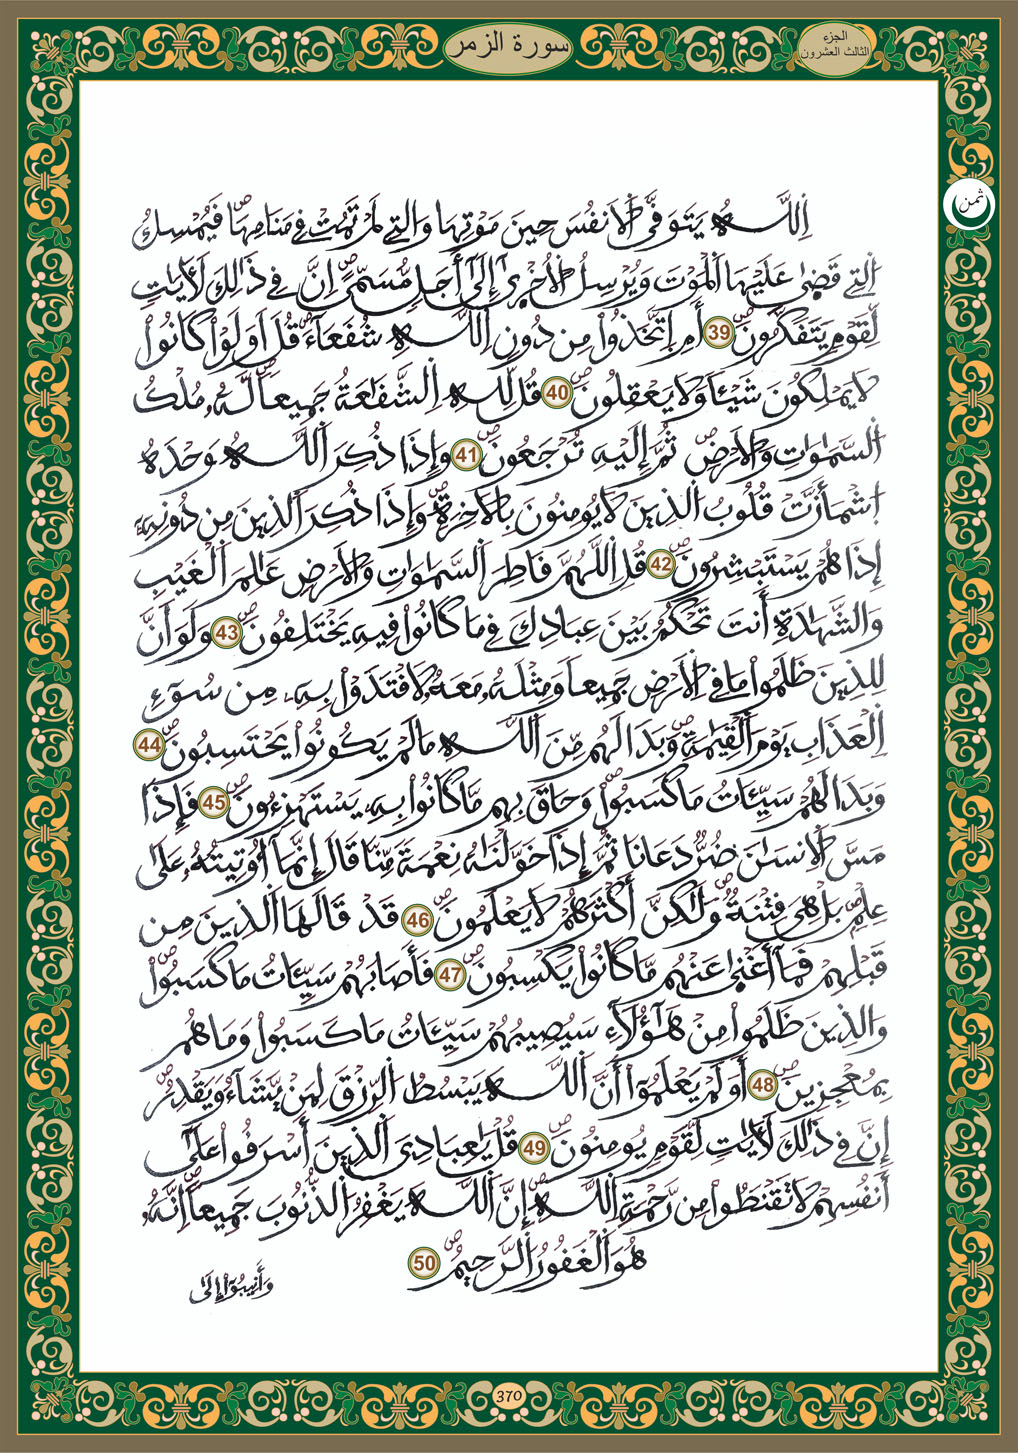 سورة الزمر
الجزء
الثالث العشرون
ثمن
اِ۬للَّهُ يَتَوَفَّى اَ۬لَانفُسَ حِينَ مَوْتِهَا وَالتِے لَمْ تَمُتْ فِے مَنَامِهَاۖ فَيُمْسِكُ
اُ۬لتِے قَض۪ىٰ عَلَيْهَا اَ۬لْمَوْتَ وَيُرْسِلُ اُ۬لُاخْر۪ىٰٓ إِلَىٰٓ أَجَلٖ مُّسَمّيًۖ اِنَّ فِے ذَٰلِكَ لَأٓيَٰتٖ
لِّقَوْمٖ يَتَفَكَّرُونَۖ 39 أَمِ اِ۪تَّخَذُواْ مِن دُونِ اِ۬للَّهِ شُفَعَآءَۖ قُلَ اَوَلَوْ كَانُواْ
لَا يَمْلِكُونَ شَيْـٔاٗ وَلَا يَعْقِلُونَۖ 40 قُل لِّلهِ اِ۬لشَّفَٰعَةُ جَمِيعاٗۖ لَّهُۥ مُلْكُ
اُ۬لسَّمَٰوَٰتِ وَالَارْضِۖ ثُمَّ إِلَيْهِ تُرْجَعُونَۖ 41 وَإِذَا ذُكِرَ اَ۬للَّهُ وَحْدَهُ
اُ۪شْمَأَزَّتْ قُلُوبُ اُ۬لذِينَ لَا يُومِنُونَ بِالَاخِرَةِۖ وَإِذَا ذُكِرَ اَ۬لذِينَ مِن دُونِهِۦٓ
إِذَا هُمْ يَسْتَبْشِرُونَۖ 42 قُلِ اِ۬للَّهُمَّ فَاطِرَ اَ۬لسَّمَٰوَٰتِ وَالَارْضِ عَٰلِمَ اَ۬لْغَيْبِ
وَالشَّهَٰدَةِ أَنتَ تَحْكُمُ بَيْنَ عِبَادِكَ فِے مَا كَانُواْ فِيهِ يَخْتَلِفُونَۖ 43 وَلَوَ اَنَّ
لِلذِينَ ظَلَمُواْ مَا فِے اِ۬لَارْضِ جَمِيعاٗ وَمِثْلَهُۥ مَعَهُۥ لَافْتَدَوْاْ بِهِۦ مِن سُوٓءِ
اِ۬لْعَذَابِ يَوْمَ اَ۬لْقِيَٰمَةِۖ وَبَدَا لَهُم مِّنَ اَ۬للَّهِ مَا لَمْ يَكُونُواْ يَحْتَسِبُونَۖ 44
وَبَدَا لَهُمْ سَيِّـَٔاتُ مَا كَسَبُواْۖ وَحَاقَ بِهِم مَّا كَانُواْ بِهِۦ يَسْتَهْزِءُونَۖ 45 فَإِذَا
مَسَّ اَ۬لِانسَٰنَ ضُرّٞ دَعَانَا ثُمَّ إِذَا خَوَّلْنَٰهُ نِعْمَةٗ مِّنَّا قَالَ إِنَّمَآ أُوتِيتُهُۥ عَلَىٰ
عِلْمِۢۖ بَلْ هِيَ فِتْنَةٞ وَلَٰكِنَّ أَكْثَرَهُمْ لَا يَعْلَمُونَۖ 46 قَدْ قَالَهَا اَ۬لذِينَ مِن
قَبْلِهِمْ فَمَآ أَغْن۪ىٰ عَنْهُم مَّا كَانُواْ يَكْسِبُونَۖ 47 فَأَصَابَهُمْ سَيِّـَٔاتُ مَا كَسَبُواْۖ
وَالذِينَ ظَلَمُواْ مِنْ هَٰٓؤُلَآءِ سَيُصِيبُهُمْ سَيِّـَٔاتُ مَا كَسَبُواْ وَمَا هُم
بِمُعْجِزِينَۖ 48 أَوَلَمْ يَعْلَمُوٓاْ أَنَّ اَ۬للَّهَ يَبْسُطُ اُ۬لرِّزْقَ لِمَنْ يَّشَآءُ وَيَقْدِرُۖ
إِنَّ فِے ذَٰلِكَ لَأٓيَٰتٖ لِّقَوْمٖ يُومِنُونَۖ 49 قُلْ يَٰعِبَادِيَ اَ۬لذِينَ أَسْرَفُواْ عَلَىٰٓ
أَنفُسِهِمْ لَا تَقْنَطُواْ مِن رَّحْمَةِ اِ۬للَّهِۖ إِنَّ اَ۬للَّهَ يَغْفِرُ اُ۬لذُّنُوبَ جَمِيعاًۖ اِنَّهُۥ
هُوَ اَ۬لْغَفُورُ اُ۬لرَّحِيمُۖ 50
وَأَنِيبُوٓاْ إِلَىٰ
370